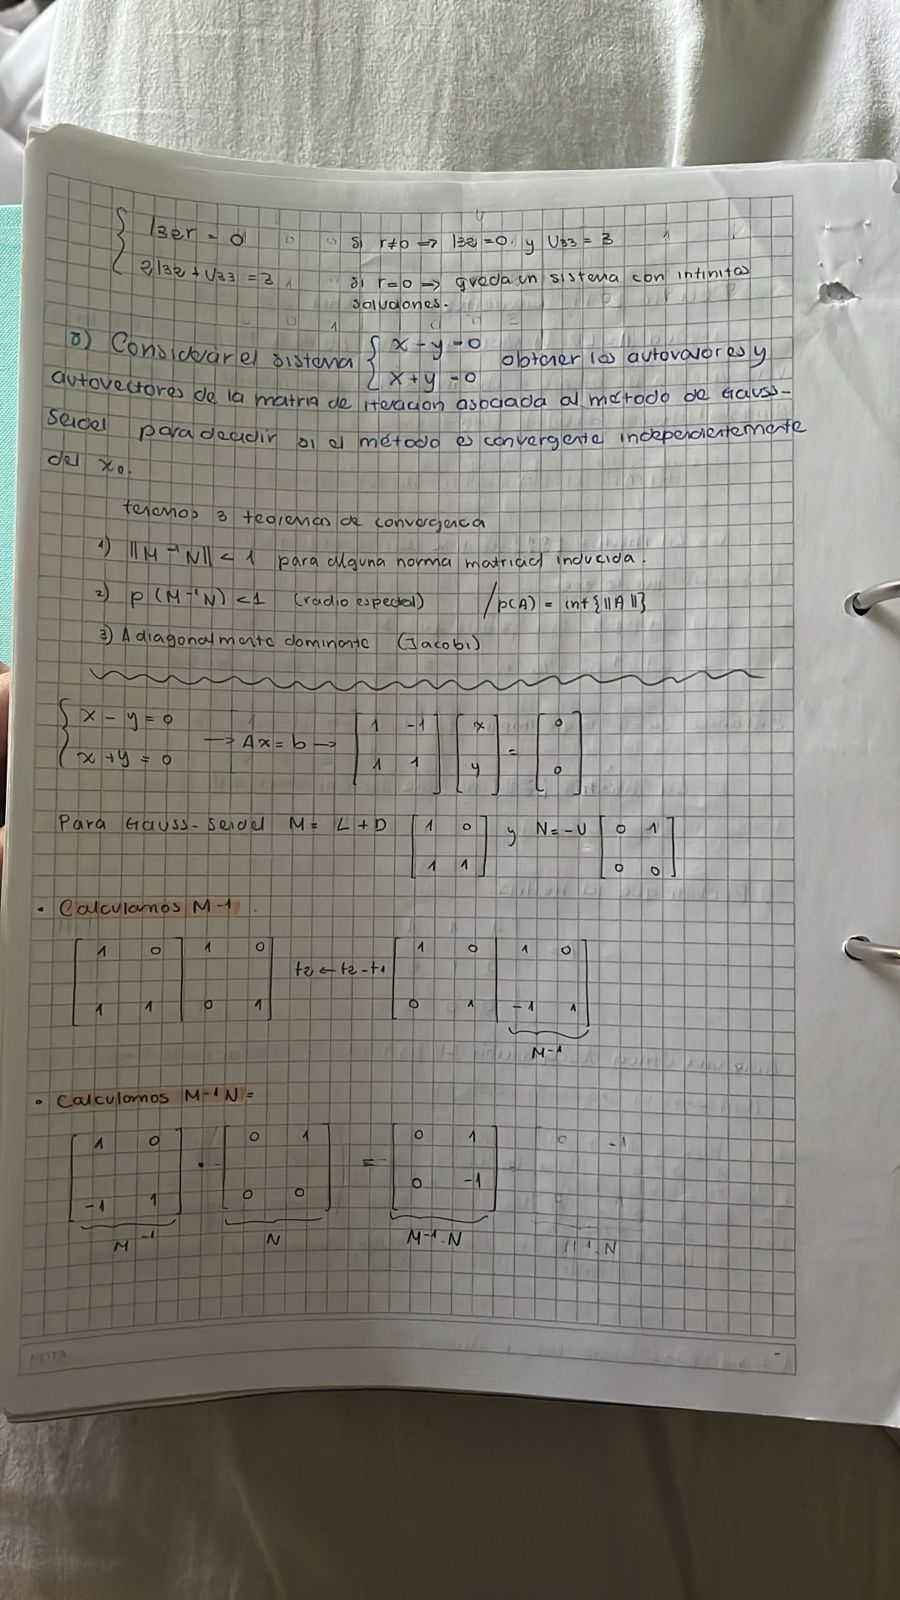 l32r = 0 si r≠0 → l32 = 0. y U33 = 3
2l32 + U33 = 3 si r=0 → queda un sistema con infinitas
soluciones.
8) Considerar el sistema { x - y = 0 obtener los autovalores y
x + y = 0
autovectores de la matriz de iteración asociada al método de Gauss-
Seidel para decidir si el método es convergente independientemente
del x0.
tenemos 3 teoremas de convergencia
1) ||M⁻¹N|| < 1 para alguna norma matricial inducida.
2) ρ(M⁻¹N) < 1 (radio espectal) / ρ(A) = inf{||A||}
3) A diagonalmente dominante (Jacobi)
{ x - y = 0
x + y = 0 → Ax = b → [1 -1; 1 1] [x; y] = [0; 0]
Para Gauss-Seidel M = L + D [1 0; 1 1] y N = -U [0 1; 0 0]
• Calculamos M-1.
[1 0 | 1 0; 1 1 | 0 1] f2 ← f2 - f1 [1 0 | 1 0; 0 1 | -1 1]
M-1
• Calculamos M-1 N =
[1 0; -1 1] · [0 1; 0 0] = [0 1; 0 -1]
M-1 N M-1.N
NOTA